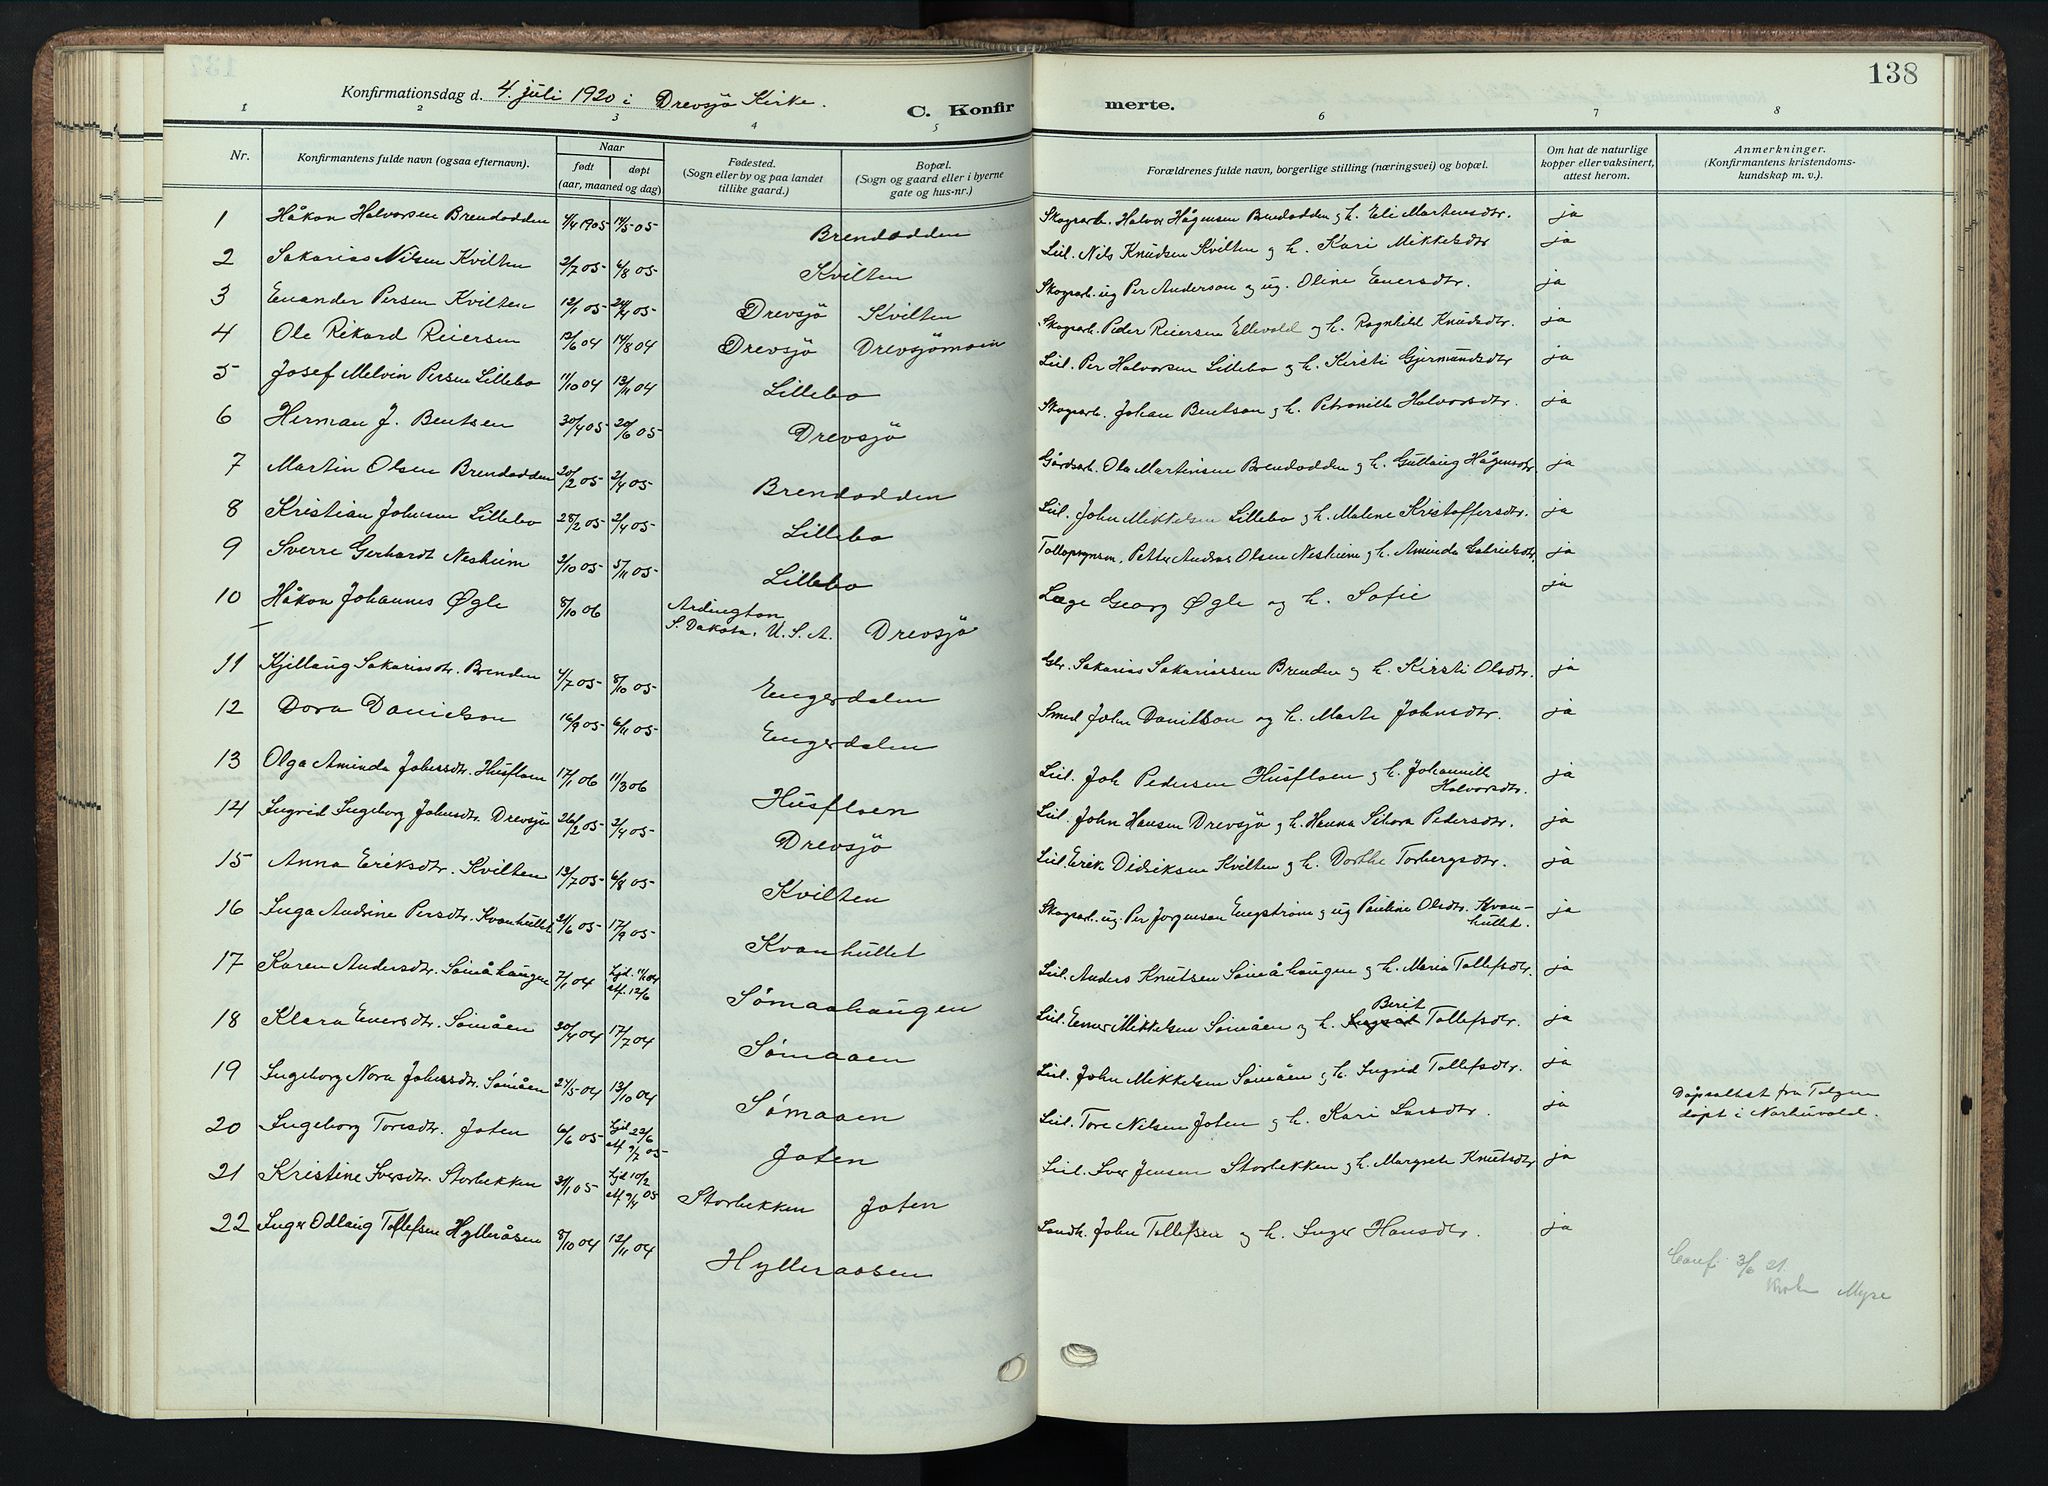 138
Konfirmationsdag d. 4. juli 1920 i Drevsjö Kirke.
C. Konfirmerte.
1 2 3 4 5 6 7 8
Nr. Konfirmantens fulde navn (ogsaa efternavn). Naar født døpt (aar, maaned og dag) Fødested. (Sogn eller by og paa landet tillike gaard.) Bopæl. (Sogn og gaard eller i byerne gate og hus-nr.) Forældrenes fulde navn, borgerlige stilling (næringsvei) og bopæl. Om hat de naturlige kopper eller vaksinert, attest herom. Anmerkninger. (Konfirmantens kristendomskundskap m. v.).
1 Håkon Halvorsen Brendodden 4/4 1905 14/5-05- Brendodden Skogsarb. Halvor Hågensen Brendodden og h. Eli Martensdtr. ja
2 Sakarias Nilsen Kvilten 2/7 05- 6/8 05- Kvilten Leil. Nils Knudsen Kvilten og h. Kari Mikkelsdtr ja
3 Enander Persen Kvilten 12/1 05- 24/4 05- Drevsjö Kvilten Skogsarb. ug Per Anderson og ug. Oline Enersdtr. ja
4 Ole Rikard Reiersen 12/6 04 14/8 04 Drevsjö Drevsjömoen Skogsarb. Peder Reiersen Ellevold og h. Ragnhild Knudsdtr. ja
5 Josef Melvin Persen Lillebo 11/10 04 13/11 04 Lillebo Leil. Per Halvorsen Lillebo og h. Kirsti Gjermundsdtr ja
6 Herman J. Bentsen 30/4 05- 20/6 05- Drevsjö Skogsarb. Johan Bentson og h. Petronille Halvorsdtr. ja
7 Martin Olsen Brendodden 20/2 05- 2/4 05- Brendodden Gårdsarb. Ola Martinsen Brendodden og h. Gullaug Hågensdtr ja
8 Kristian Johnsen Lillebo 28/2 05- 2/4 05- Lillebo Leil. John Mikkelsen Lillebo og h. Malene Kristoffersdtr. ja
9 Sverre Gerhardt Neshiem 2/10 05- 5/11 05- Lillebo Tollopsynsm. Petter Andreas Olsen Neshiem og h. Aminda Gabrielsdtr. ja
10 Håkon Johannes Øgle 8/10 06 Ardington S. Dakota, U. S. A. Drevsjö Læge Georg Øgle og h. Sofie ja
11 Kjellaug Sakariasdtr. Brenden 4/7 05- 8/10 05- Engerdalen Gbr. Sakarias Sakariassen Brenden og h. Kirsti Olsdtr. ja
12 Dora Danielson 16/9 05- 6/11 05- Engerdalen Smed John Danielson og h. Marte Johnsdtr. ja
13 Olga Aminda Johnsdtr. Husfloen 17/1 06 11/3 06 Husfloen Leil. Joh Pedersen Husfloen og h. Johannille Halvorsdtr. ja
14 Ingrid Ingeborg Johnsdtr. Drevsjö 26/2 05- 2/4 05- Drevsjö Leil. John Hansen Drevsjö og h. Hanna Sibora Pedersdtr. ja
15 Anna Eriksdtr. Kvilten 13/7 05- 6/8 05- Kvilten Leil Erik Didriksen Kvilten og h. Dorthe Torbergsdtr. ja
16 Inga Andrine Persdtr. Kvanhullet 21/6 05- 17/9 05- Kvanhullet Skogsarb. ug. Per Jorgenson Engström og ug Pauline Olsdtr. Kvanhullet. ja
17 Karen Andersdtr. Sömåhaugen 7/1 04 Hjd. 11/1 04 stf. 12/6 Sømaahaugen Leil. Anders Knutsen Sömåhaugen og h. Maria Tollefsdtr. ja
18 Klara Enersdtr. Sömåen 30/4 04 17/7 04 Sømaaen Leil. Ener Mikkelsen Sömåen og h. Berit Tollefsdtr. ja
19 Ingeborg Nora Johnsdtr. Sömåen 27/5-04 13/10 04 Sømaaen Leil. John Mikkelsen Sömåen og h. Ingrid Tollefsdtr. ja
20 Ingeborg Toresdtr. Joten 6/6 05- Hjd 22/6 stf 9/7 05- Joten Leil. Tore Nilsen Joten og h. Kari Larsdtr. ja Dåpsattest fra Tolgen døpt i Narbuvold.
21 Kristine Iversdtr. Storbekken 31/1 05- Hjd 10/2 stf 9/4 05 Storbekken Joten Leil. Iver Jensen Storbekken og h. Margrete Knutsdtr ja
22 Inger Odlaug Tollefsen Hylleråsen 8/10 04 12/11 04 Hylleraasen Landh. John Tollefsen og h. Inger Hansdtr. ja
Conf. 3/6 21.
Myre